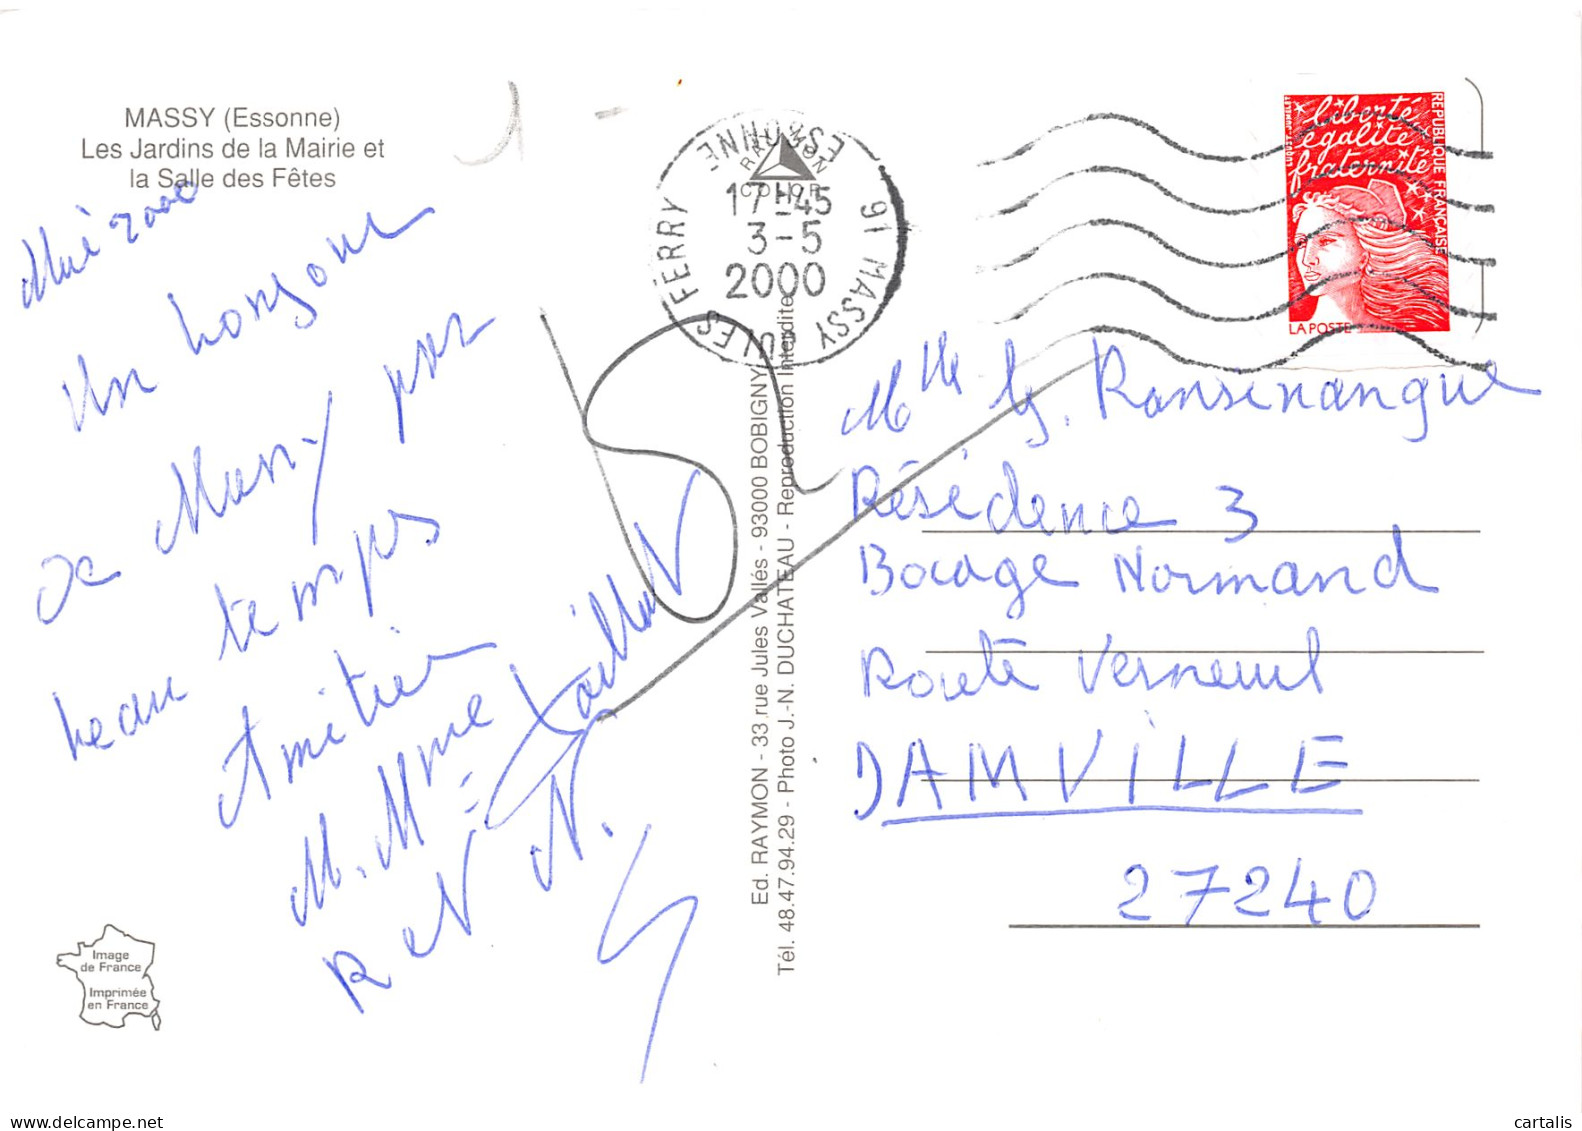 MASSY (Essonne)
Les Jardins de la Mairie et
la Salle des Fêtes
Mai 2000
Un bonjour
de Massy par
beau temps
Amitier
M. Mme
Ed. RAYMON - 33 rue Jules Vallés - 93000 BOBIGNY
Tél. 48.47.94.29 - Photo J.-N. DUCHATEAU - Reproduction Interdite
RAYMON
COLOR
91 MASSY JULES FERRY
ESSONNE
17-45
3-5
2000
liberté
égalité
fraternité
REPUBLIQUE FRANÇAISE
LA POSTE
Mlle G. Ransinangue
Résidence 3
Bocage Normand
Route Verneuil
DAMVILLE
27240
Image
de France
Imprimée
en France
1
cartalis